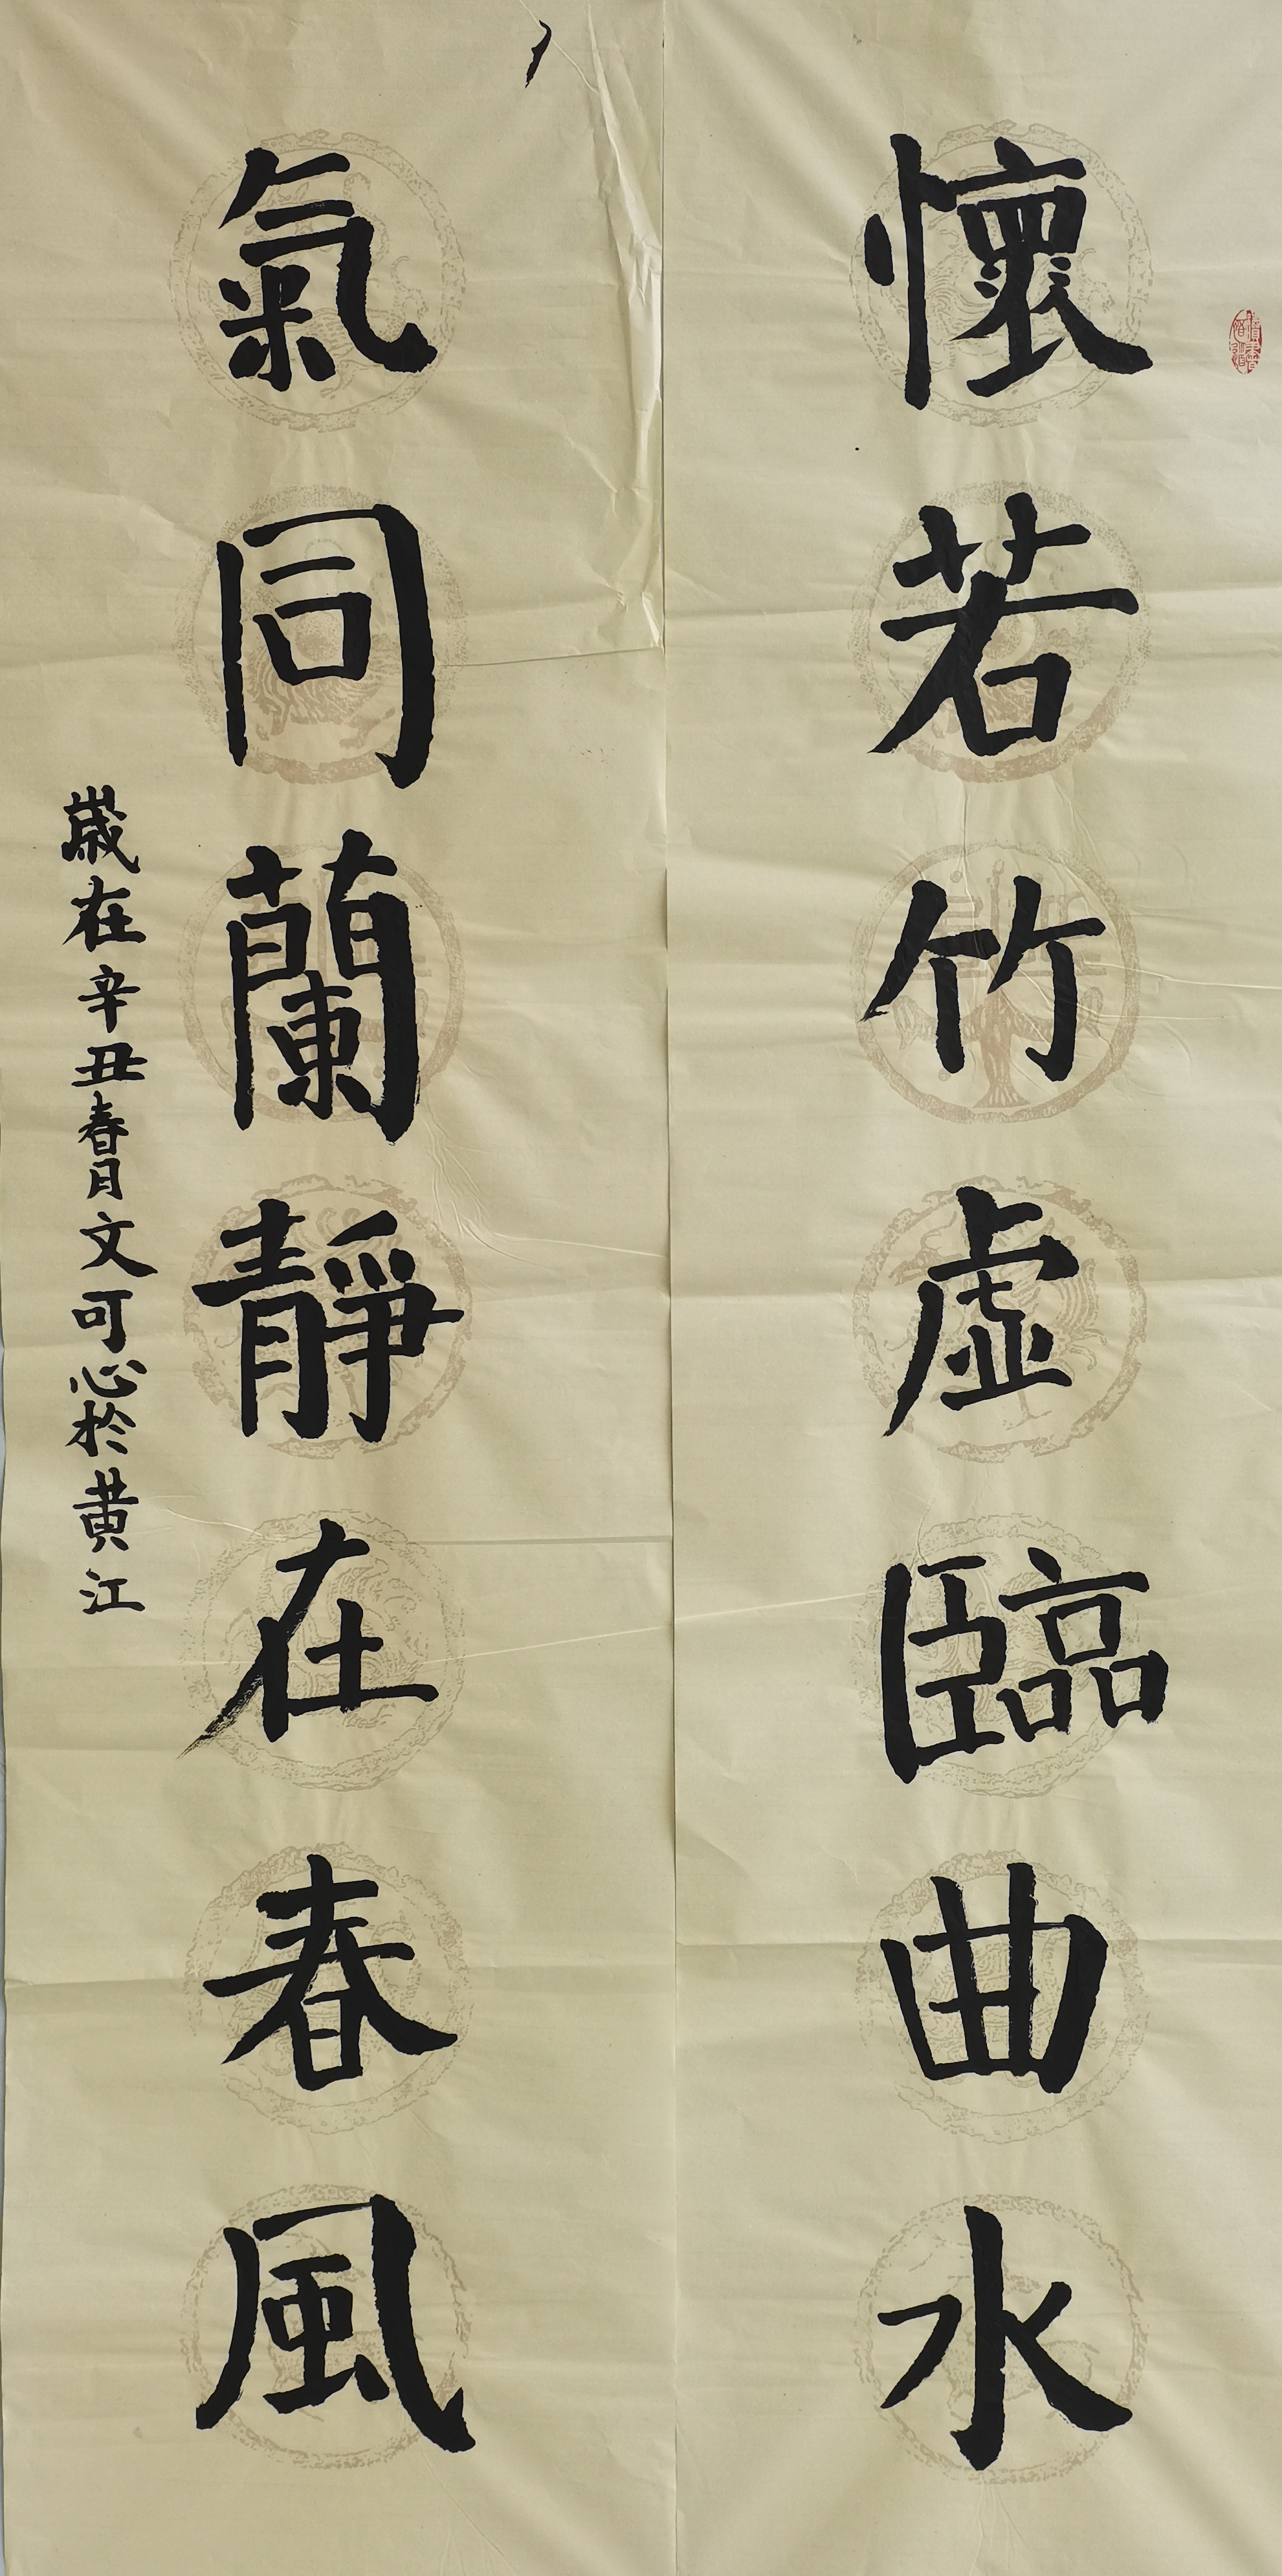 懷若竹虛臨曲水
氣同蘭靜在春風
歲在辛丑春日文可心於黄江